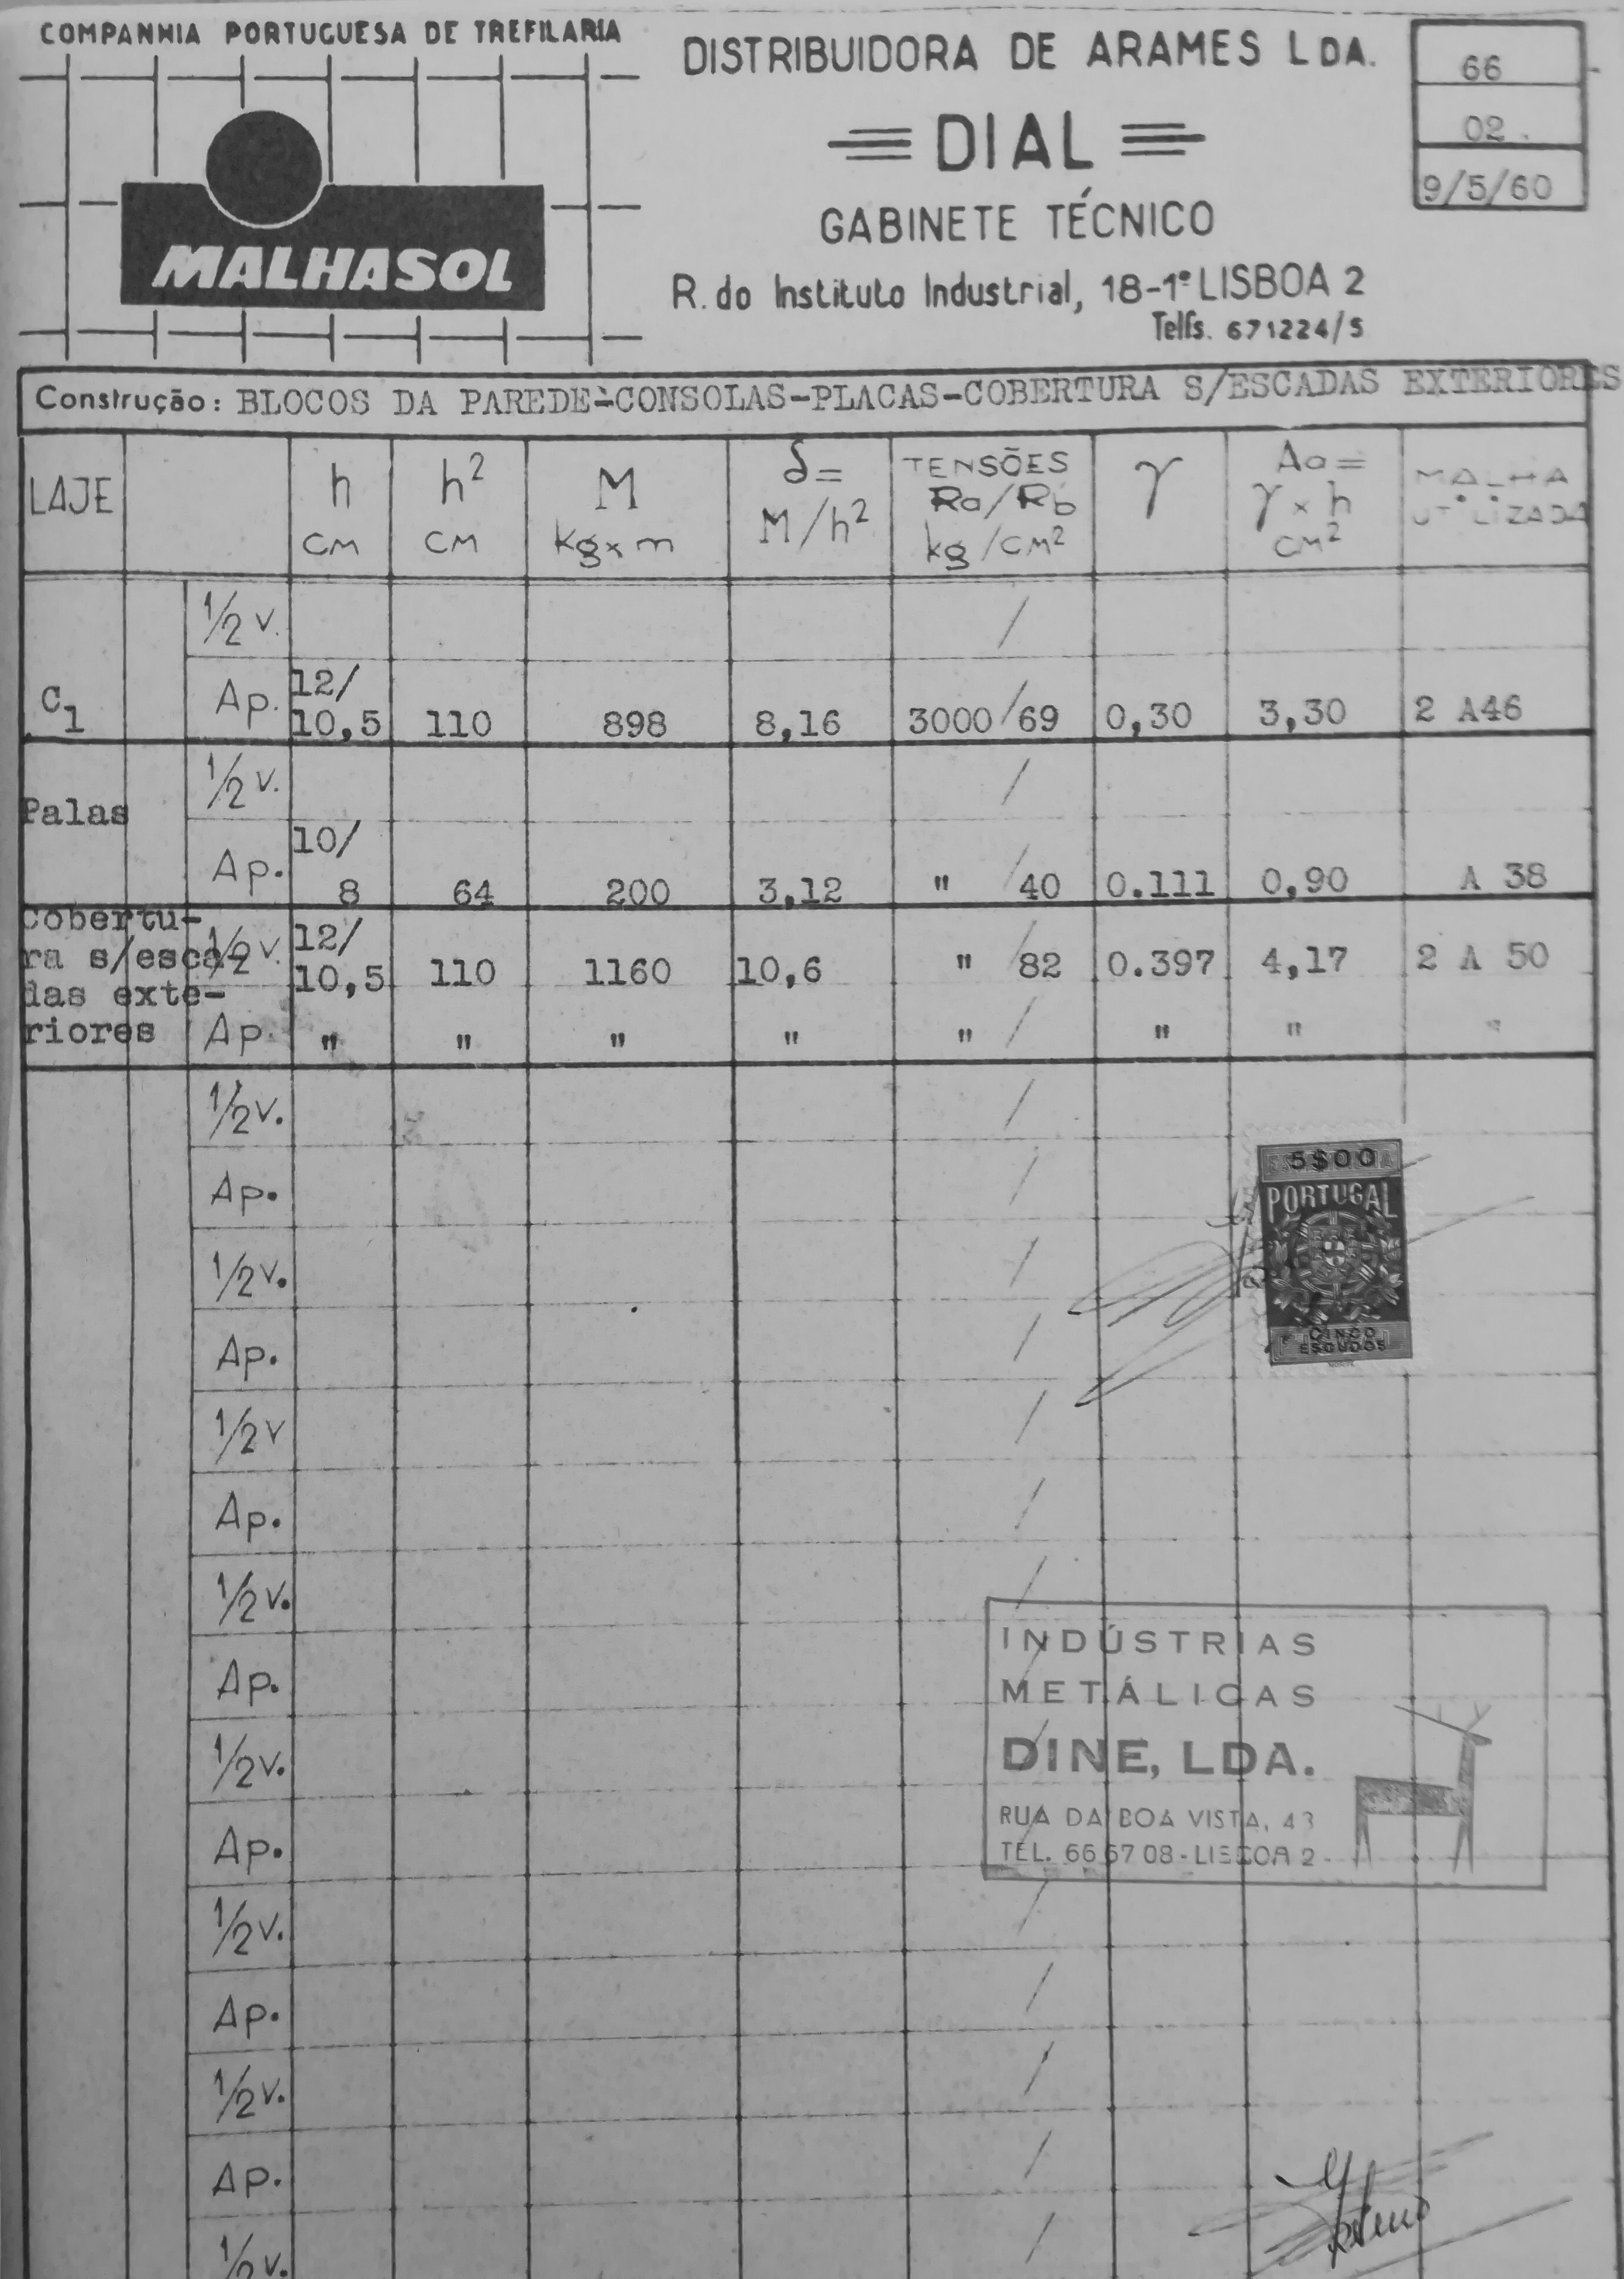 COMPANHIA PORTUGUESA DE TREFILARIA
MALHASOL
DISTRIBUIDORA DE ARAMES LDA.
DIAL
GABINETE TÉCNICO
R. do Instituto Industrial, 18-1º LISBOA 2
Telfs. 671224/5
66
02.
9/5/60
Construção: BLOCOS DA PAREDE-CONSOLAS-PLACAS-COBERTURA S/ESCADAS EXTERIORES
LAJE h CM h² CM M kg×m δ= M/h² TENSÕES Ra/Rb kg/CM² γ Aa= γ×h CM² MALHA UTILIZADA
1/2 v. /
C1 Ap. 12/10,5 110 898 8,16 3000/69 0,30 3,30 2 A46
Palas 1/2 v. /
Ap. 10/8 64 200 3,12 " /40 0.111 0,90 A 38
Cobertu-
ra s/esca- 1/2 v. 12/10,5 110 1160 10,6 " /82 0.397 4,17 2 A 50
das exte-
riores Ap. " " " " " / " " "
1/2 v. /
Ap. /
1/2 v. /
Ap. /
1/2 v /
Ap. /
1/2 v. /
Ap. /
1/2 v. /
Ap.
1/2 v. /
Ap. /
1/2 v. /
Ap. /
1/2 v. /
5$00
PORTUGAL
CINCO
ESCUDOS
INDÚSTRIAS
METÁLICAS
DINE, LDA.
RUA DA BOA VISTA, 43
TEL. 66 67 08 - LISBOA 2